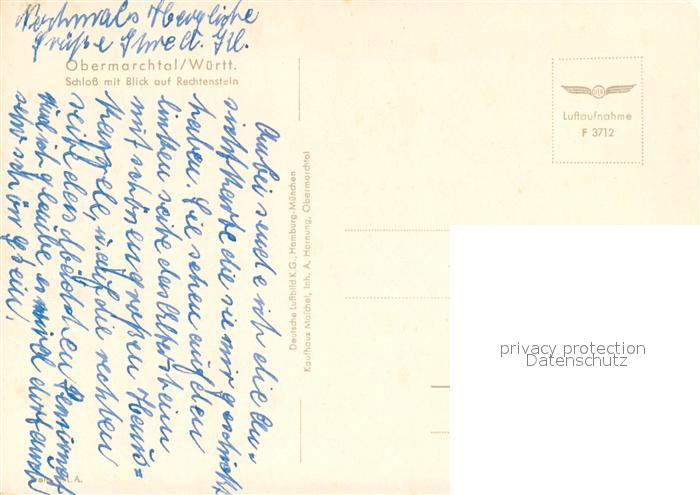 Nochmals Herzliche
Grüße Ihre A. Gl.
Obermarchtal/Württ.
Schloß mit Blick auf Rechtenstein
Anbei sende ich die An-
sichtskarte die sie mir geschickt
haben. Sie sehen auf der
linken seite das
mit schönen großen Haus=
kapelle, u. auf die rechten
seite das Mädchen Pensionat
und ich glaube es wird dort auch
sehr schön sein.
Deutsche Luftbild K.G., Hamburg-München
Kaufhaus Maichel, Inh. A. Hornung, Obermarchtal
Luftaufnahme
F 3712
privacy protection
Datenschutz